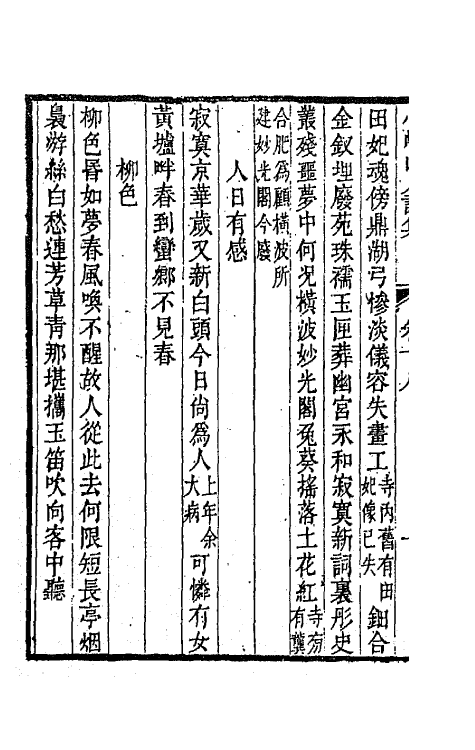 田妃魂傍鼎湖弓慘淡儀容失畫工寺内舊有田妃像已失鈿合
金釵埋廢苑珠襦玉匣葬幽宮永和寂寞新詞裏彤史
叢殘噩夢中何况橫波妙光閣兔葵搖落土花紅寺旁有龔
合肥爲顧橫波所建妙光閣今廢
人日有感
寂寞京華歲又新白頭今日尙爲人上年余大病可憐有女
黃壚畔春到蠻鄉不見春
柳色
柳色昬如夢春風喚不醒故人從此去何限短長亭烟
裊游絲白愁連芳草靑那堪攜玉笛吹向客中聽